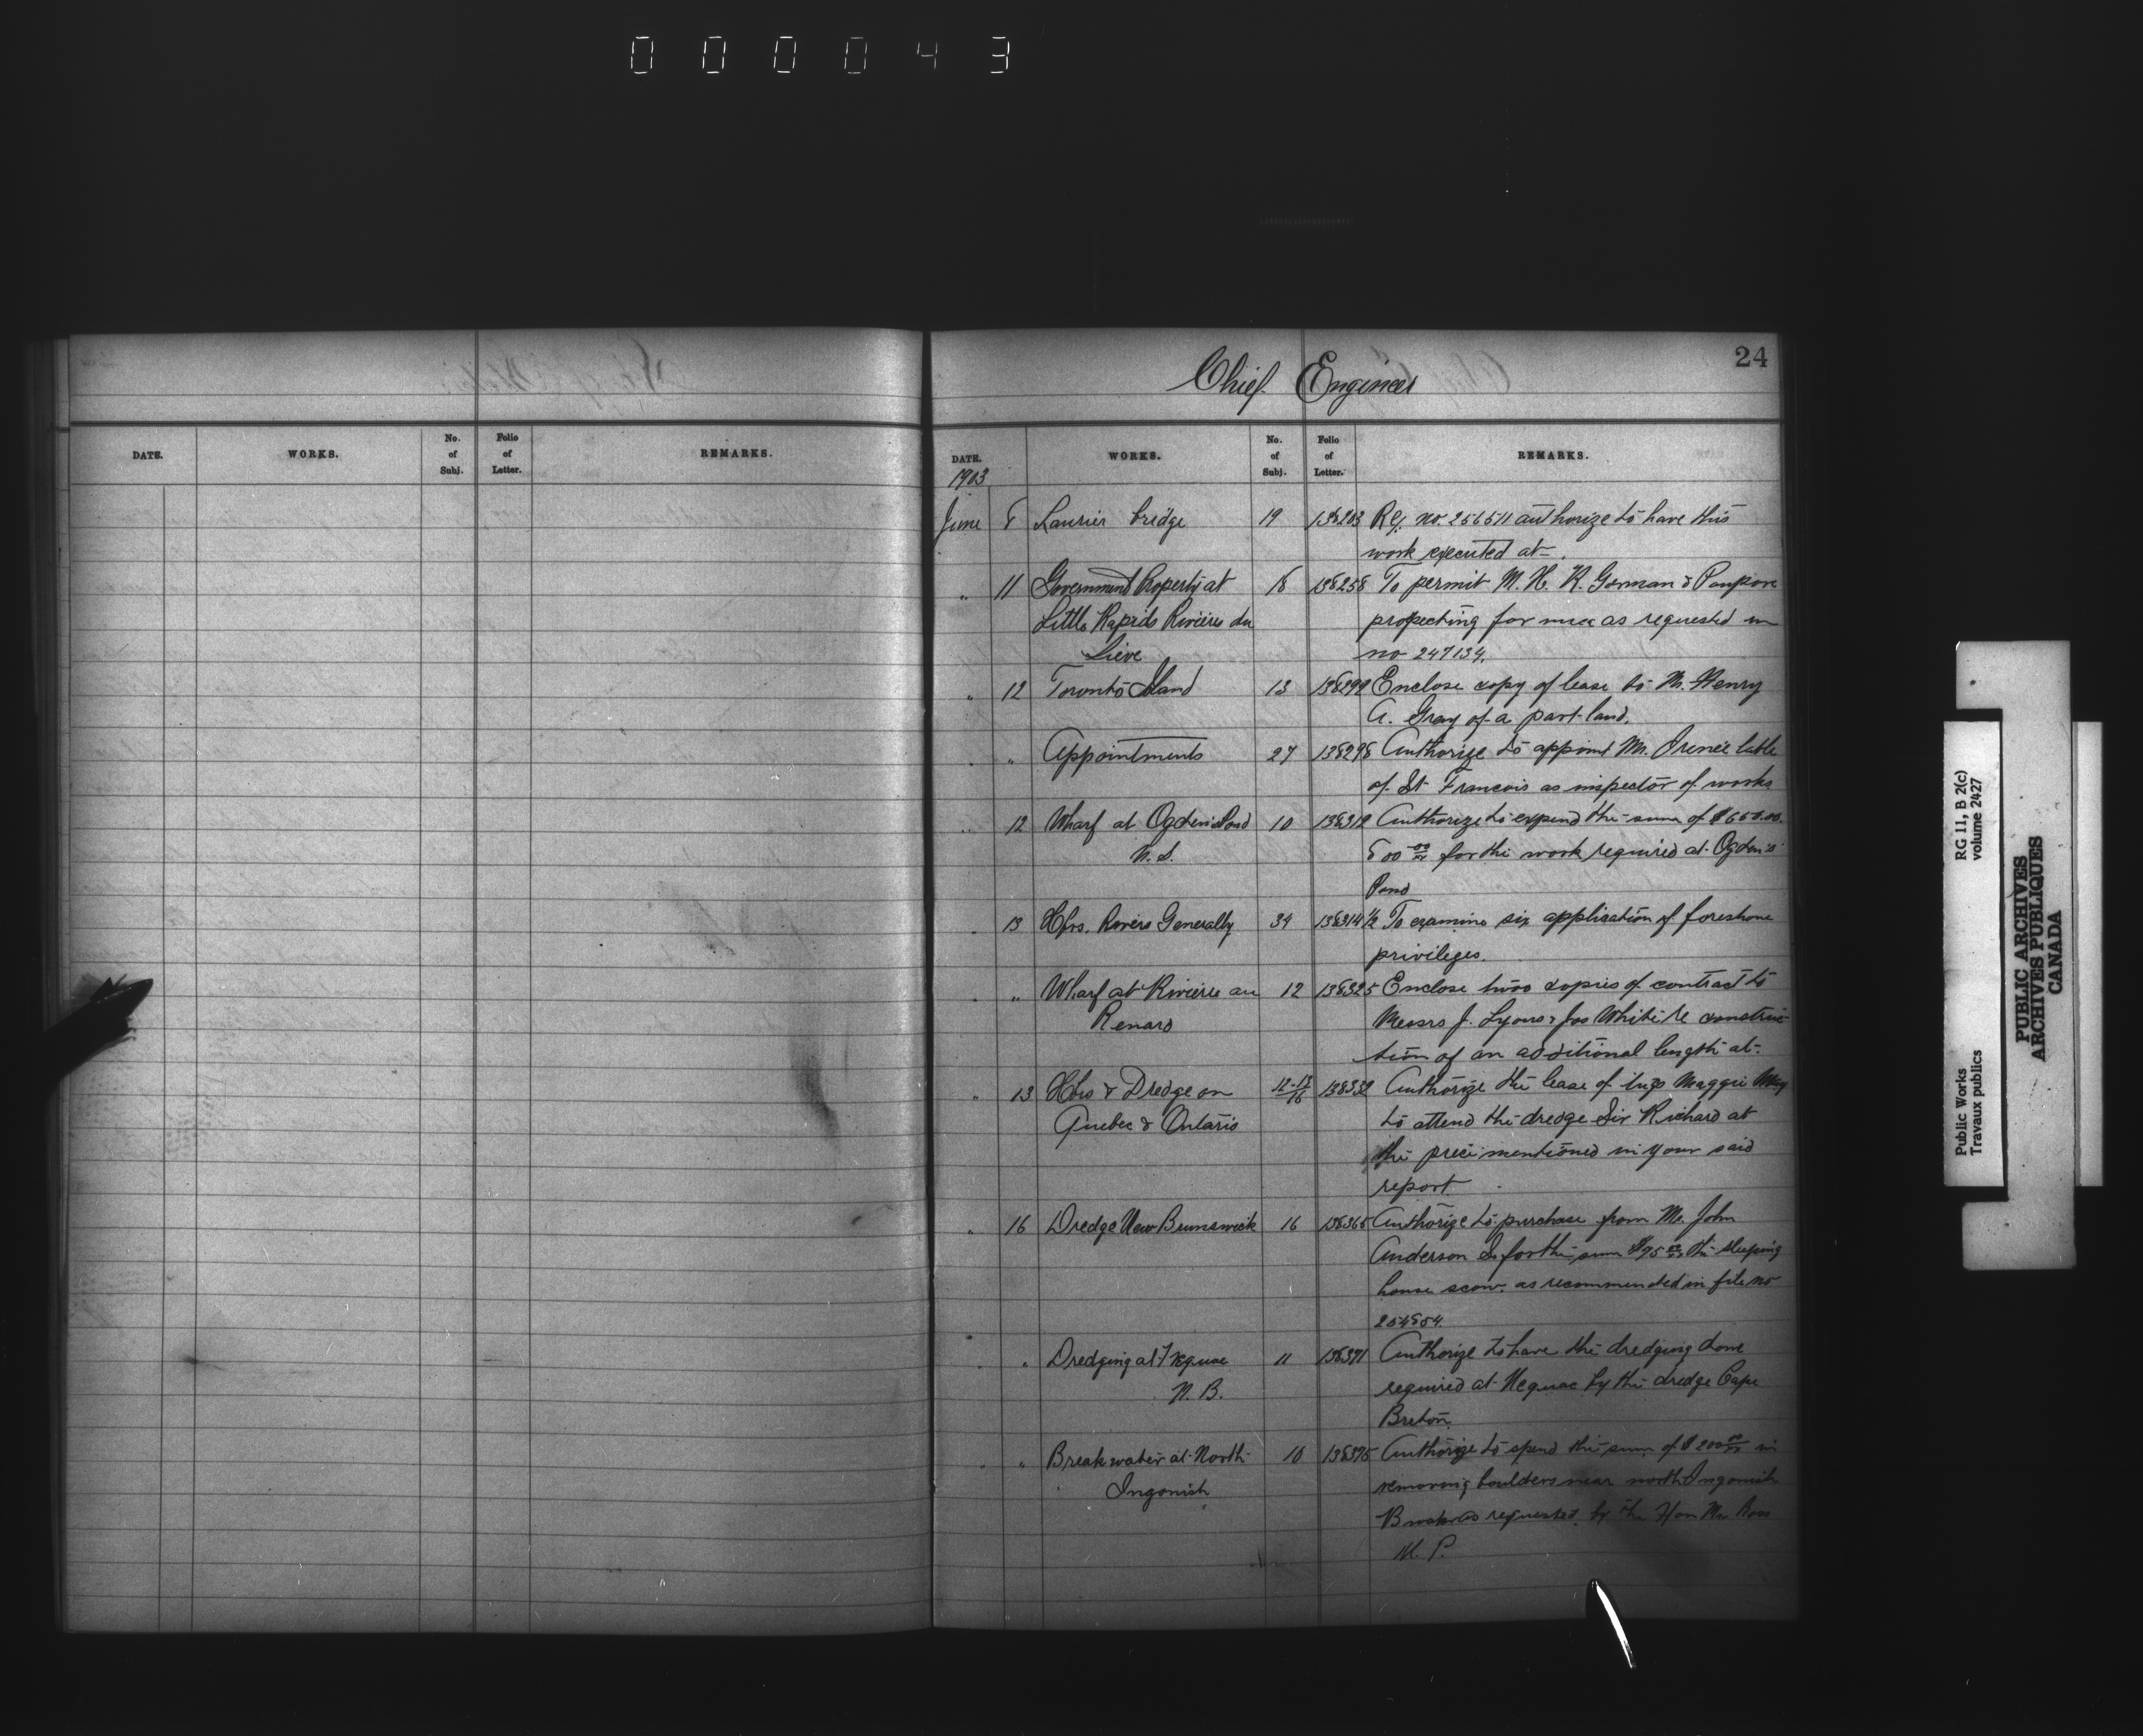 000043
24
Chief Engineer
DATE. WORKS. No. of Subj. Folio of Letter. REMARKS.
DATE. WORKS. No. of Subj. Folio of Letter. REMARKS.
1903
June 8 Laurier bridge 19 138203 Rej. no. 256511 authorize to have this
work executed at.
" 11 Government Property at 18 138258 To permit M. H. R. Gorman & Paupore
Little Rapids Rivière du propecting for mica as requested in
Lieve no 247134.
" 12 Toronto Island 13 138299 Enclose copy of lease to Mr. Henry
A. Gray of a part land.
" " Appointments 27 138298 Authorize to appoint Mr. Irénée
of St Francois as inspector of works
" 12 Wharf at Ogden's Pond 10 138312 Authorize to expend the sum of $650.00.
N.S. 800 00/xx for the work required at Ogden's
Pond
" 13 Hbrs. Rivers Generally 34 138314½ To examine six application of foreshore
privileges.
" " Wharf at Rivière au 12 138325 Enclose two copies of contract to
Renard Messrs J. Lyons & Jos White re construc-
tion of an additional length at.
" 13 Hbrs & Dredge on 12-13/16 138332 Authorize the lease of tugs Maggie May
Quebec & Ontario to attend the dredge Sir Richard at
the price mentioned in your said
report.
" 16 Dredge New Brunswick 16 138365 Authorize to purchase from Mr. John
Anderson for the sum $75 00/xx the sleeping
house scow. as recommended in file no
254854.
" " Dredging at Neguac 11 138371 Authorize to have the dredging done
N.B. required at Neguac by the dredge Cape
Breton.
" " Breakwater at North 10 138375 Authorize to spend the sum of $200 00/xx in
Ingonish removing boulders near north Ingonish
as requested by the Hon Mr. Ross
M.P.
Public Works
Travaux publics
RG 11, B 2(c)
volume 2427
PUBLIC ARCHIVES
ARCHIVES PUBLIQUES
CANADA